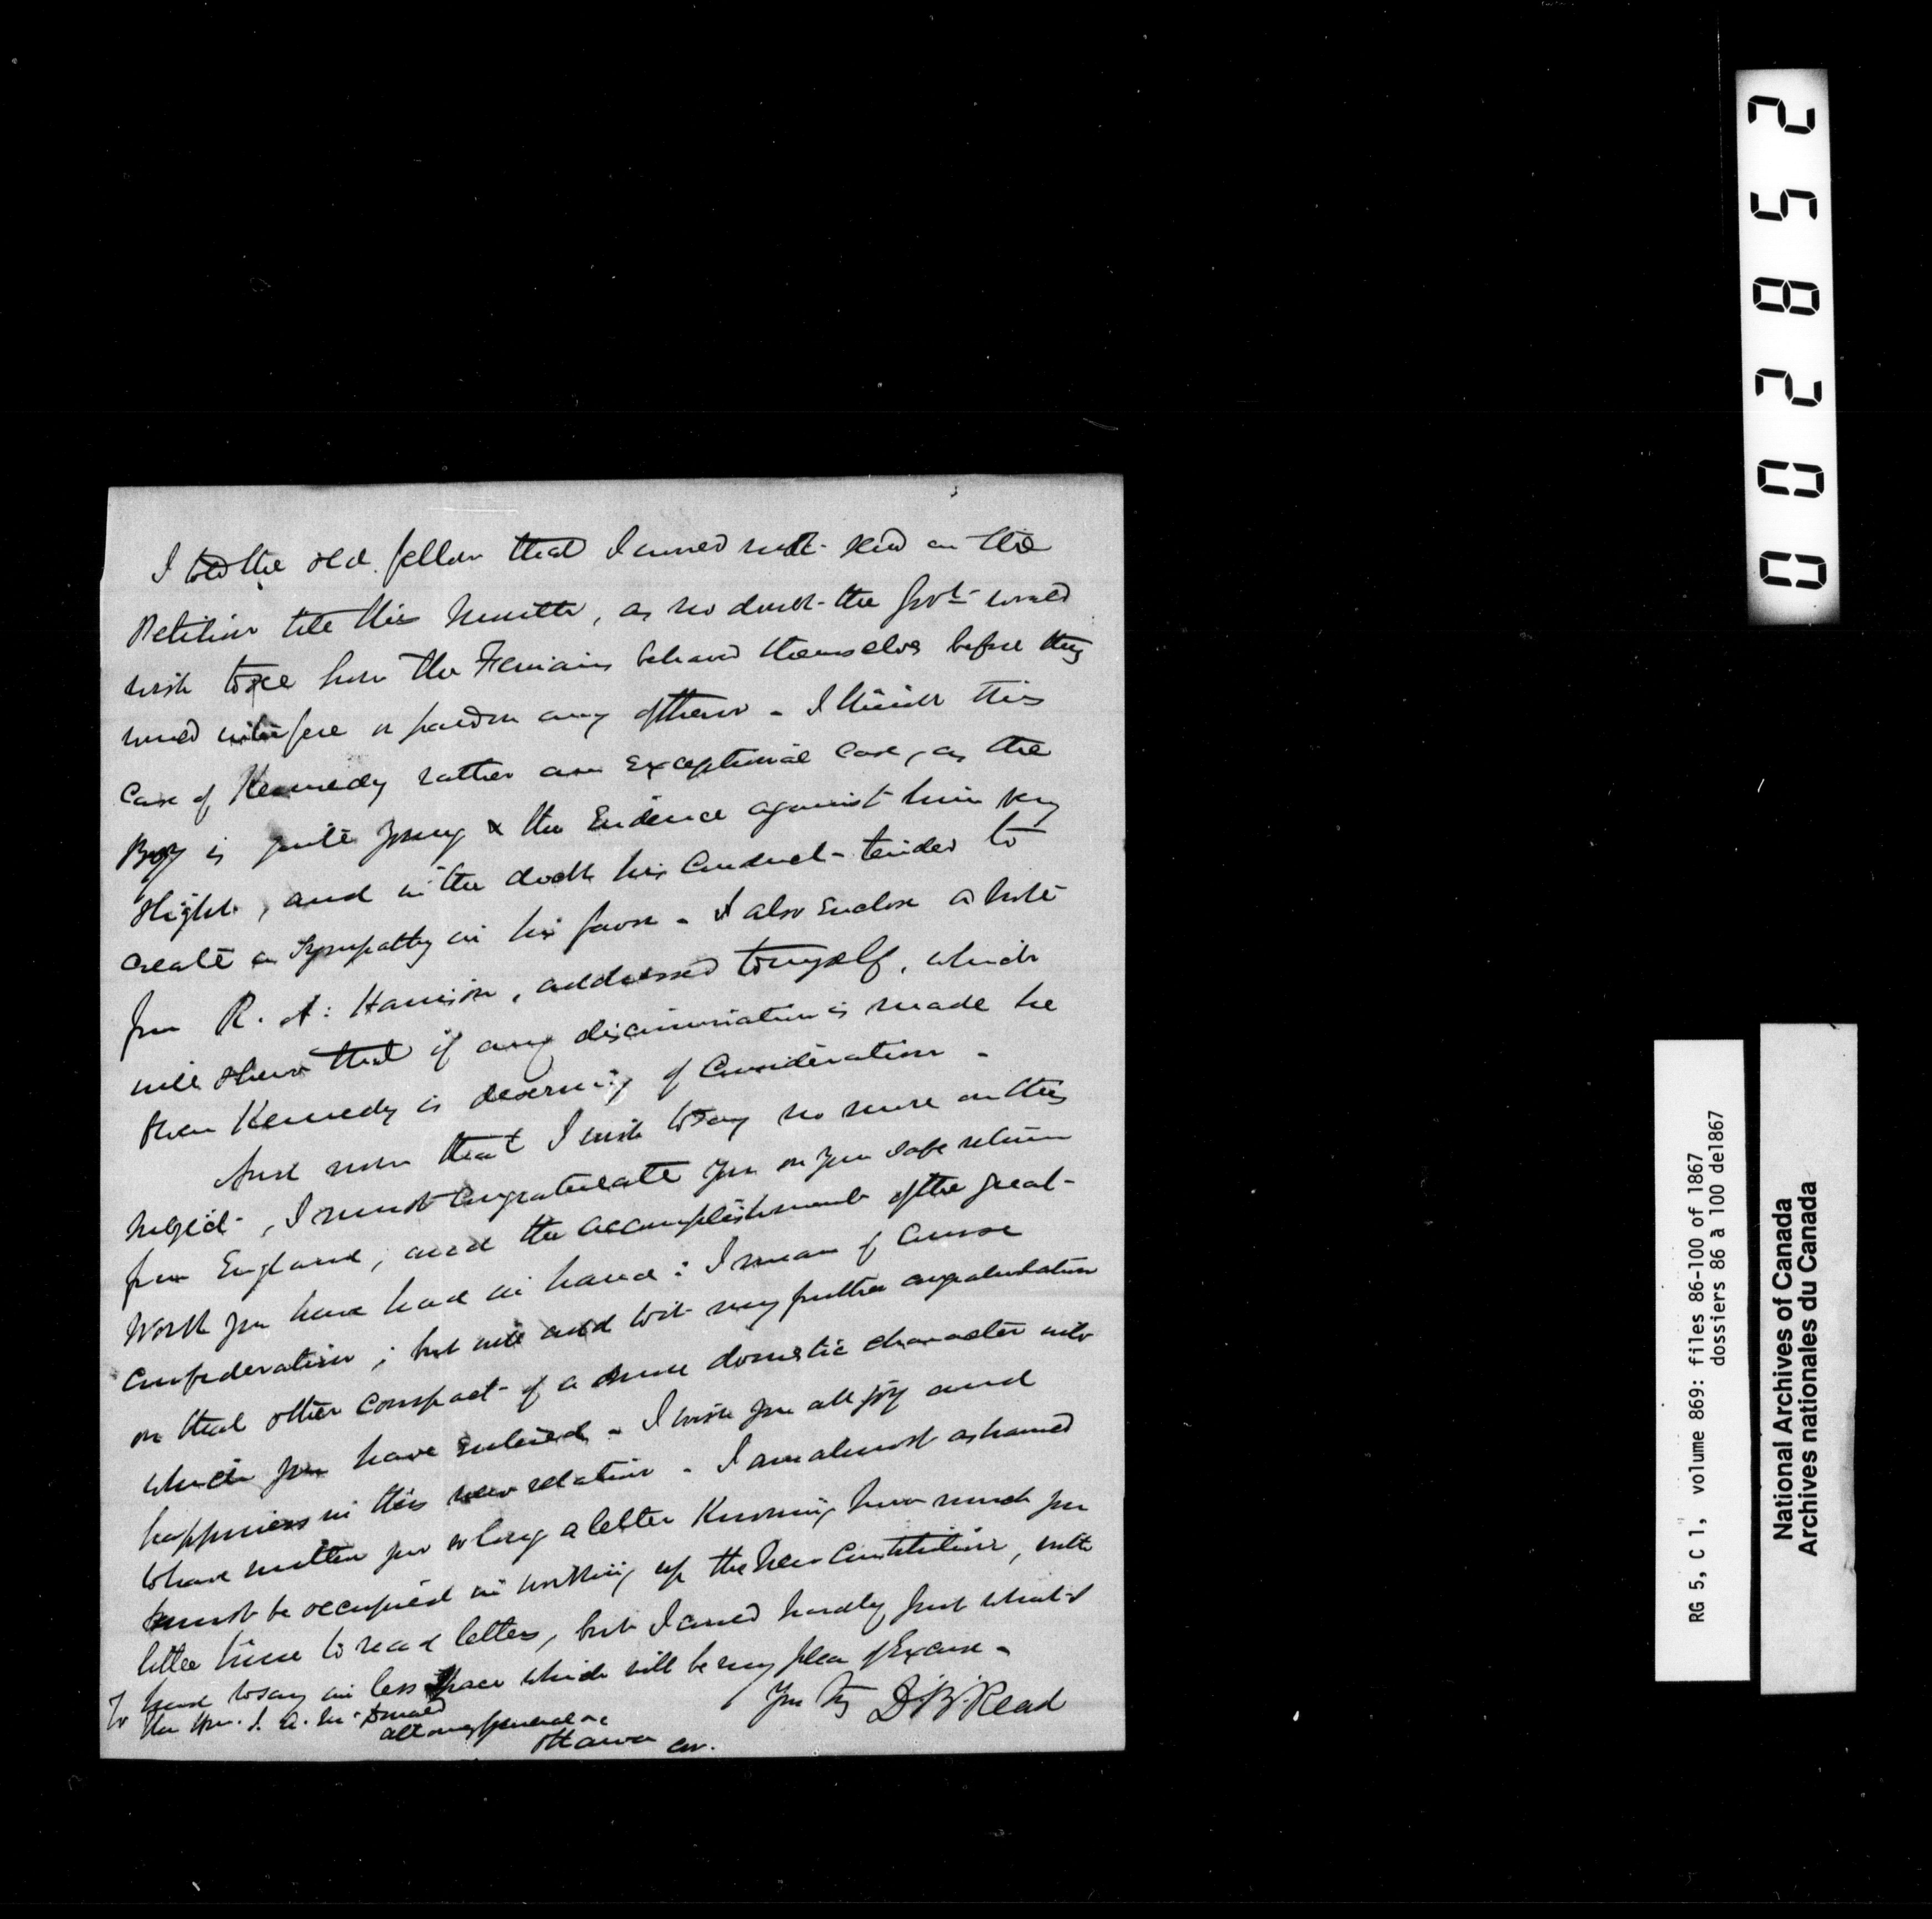 I told the old fellow that I would not send on the
Petition till this month, as no doubt the Govt would
wish to see how the Fenians behaved themselves before they
would interfere or pardon any of them - I think this
Case of Kennedy rather an exceptional case, as the
Boy is quite young & the Evidence against him very
slight, and in the dock his Conduct tended to
create a Sympathy in his favor - I also Enclose a note
from R. A: Harrison, addressed to myself, which
will shew that if any discrimination is made he
then Kennedy is deserving of Consideration -
And now that I wish to say no more on this
subject, I must Congratulate you on your safe return
from England, and the accomplishment of the great
Work you have had in hand: I mean of Course
Confederation; but will add to it my further congratulation
on that other Compact of a more domestic character into
which you have entered - I wish you all joy and
happiness in this new relation - I am almost ashamed
to have written you so long a letter Knowing how much you
must be occupied in working up the New Constitution, with
little time to read letters, but I could hardly put what I
had to say in less space which will be my plea of Excuse -
Yrs Try D. B. Read
To
The Hon. J. A. McDonald
Attorney General &c
Ottawa CW.
25820 0
RG 5, C 1, volume 869: files 86-100 of 1867
dossiers 86 à 100 de1867
National Archives of Canada
Archives nationales du Canada